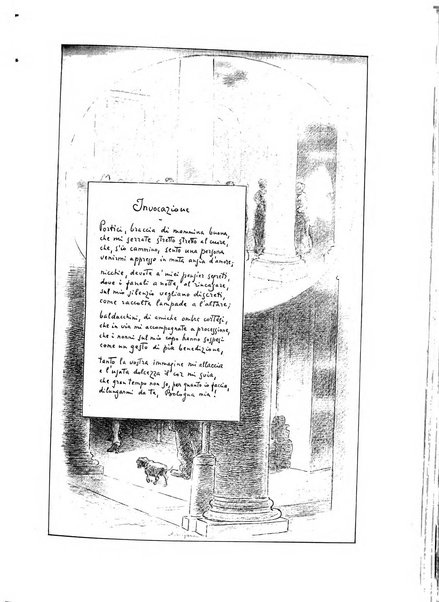 Invocazione
Portici, braccia di mammina buona,
che mi serrate stretto stretto al cuore,
che, s'io cammino, sento una persona
venirmi appresso in muta ansia d'amore;
nicchie, devote a' miei pensier segreti,
dove i fanali a notte, al rincasare,
sul mio silenzio vegliano discreti,
come raccolte lampade a l'altare;
baldacchini, di amiche ombre cortesi,
che in via mi accompagnate a processione,
che i nonni sul mio capo hanno sospesi
come un gesto di pia benedizione,
tanto la vostra immagine mi allaccia
e l'usata dolcezza il cor mi guia,
che gran tempo non so, per quanto io faccia,
dilungarmi da te, Bologna mia!